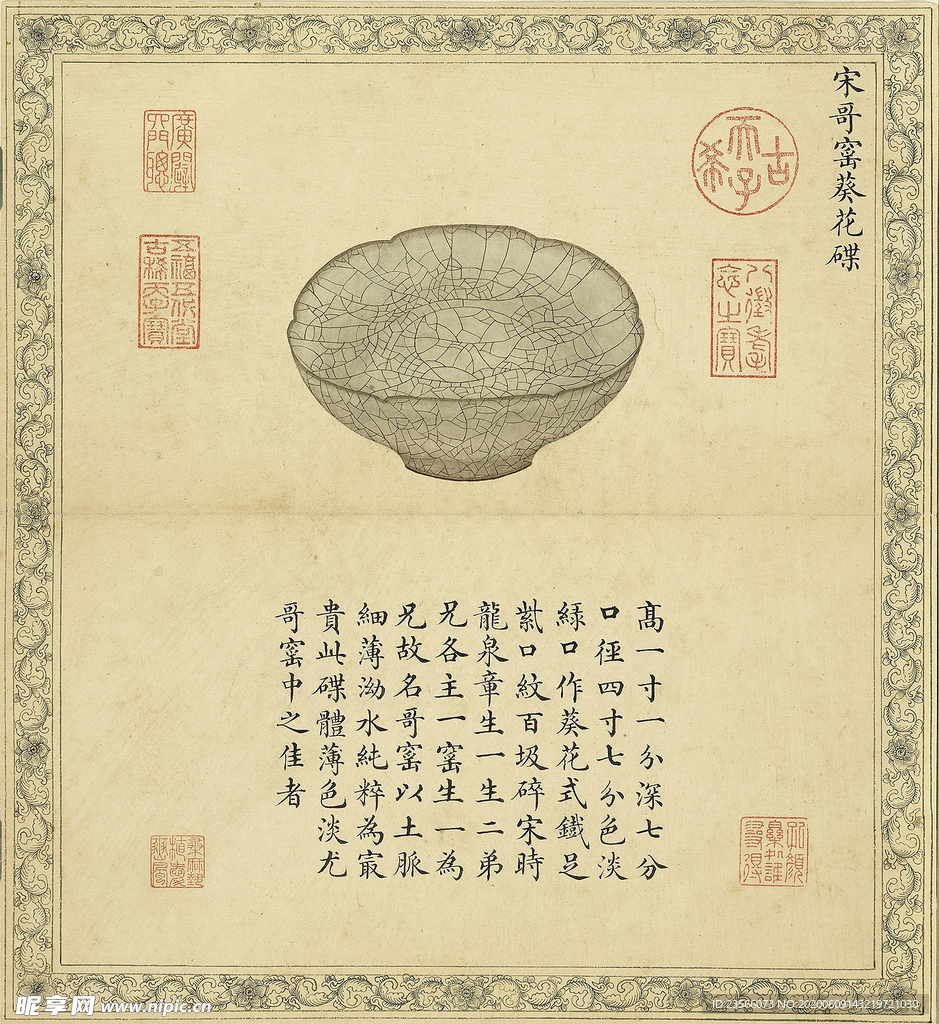 宋哥窰葵花碟
古希天子
八徵耄念之寳
廣闢四門聰
五福五代堂古稀天子寳
高一寸一分深七分
口徑四寸七分色淡
緑口作葵花式鐵足
紫口紋百圾碎宋時
龍泉章生一生二弟
兄各主一窰生一為
兄故名哥窰以土脈
細薄泑水純粹為㝡
貴此碟體薄色淡尤
哥窰中之佳者
昵享网 www.nipic.cn
ID:23566073 NO:20200609143219721030